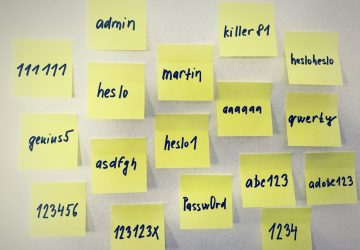 admin
killer81
111111
hesloheslo
martin
heslo
aaaaaa
qwerty
genius5
heslo1
asdfgh
abc123
adobe123
Passw0rd
123456
123123X
1234